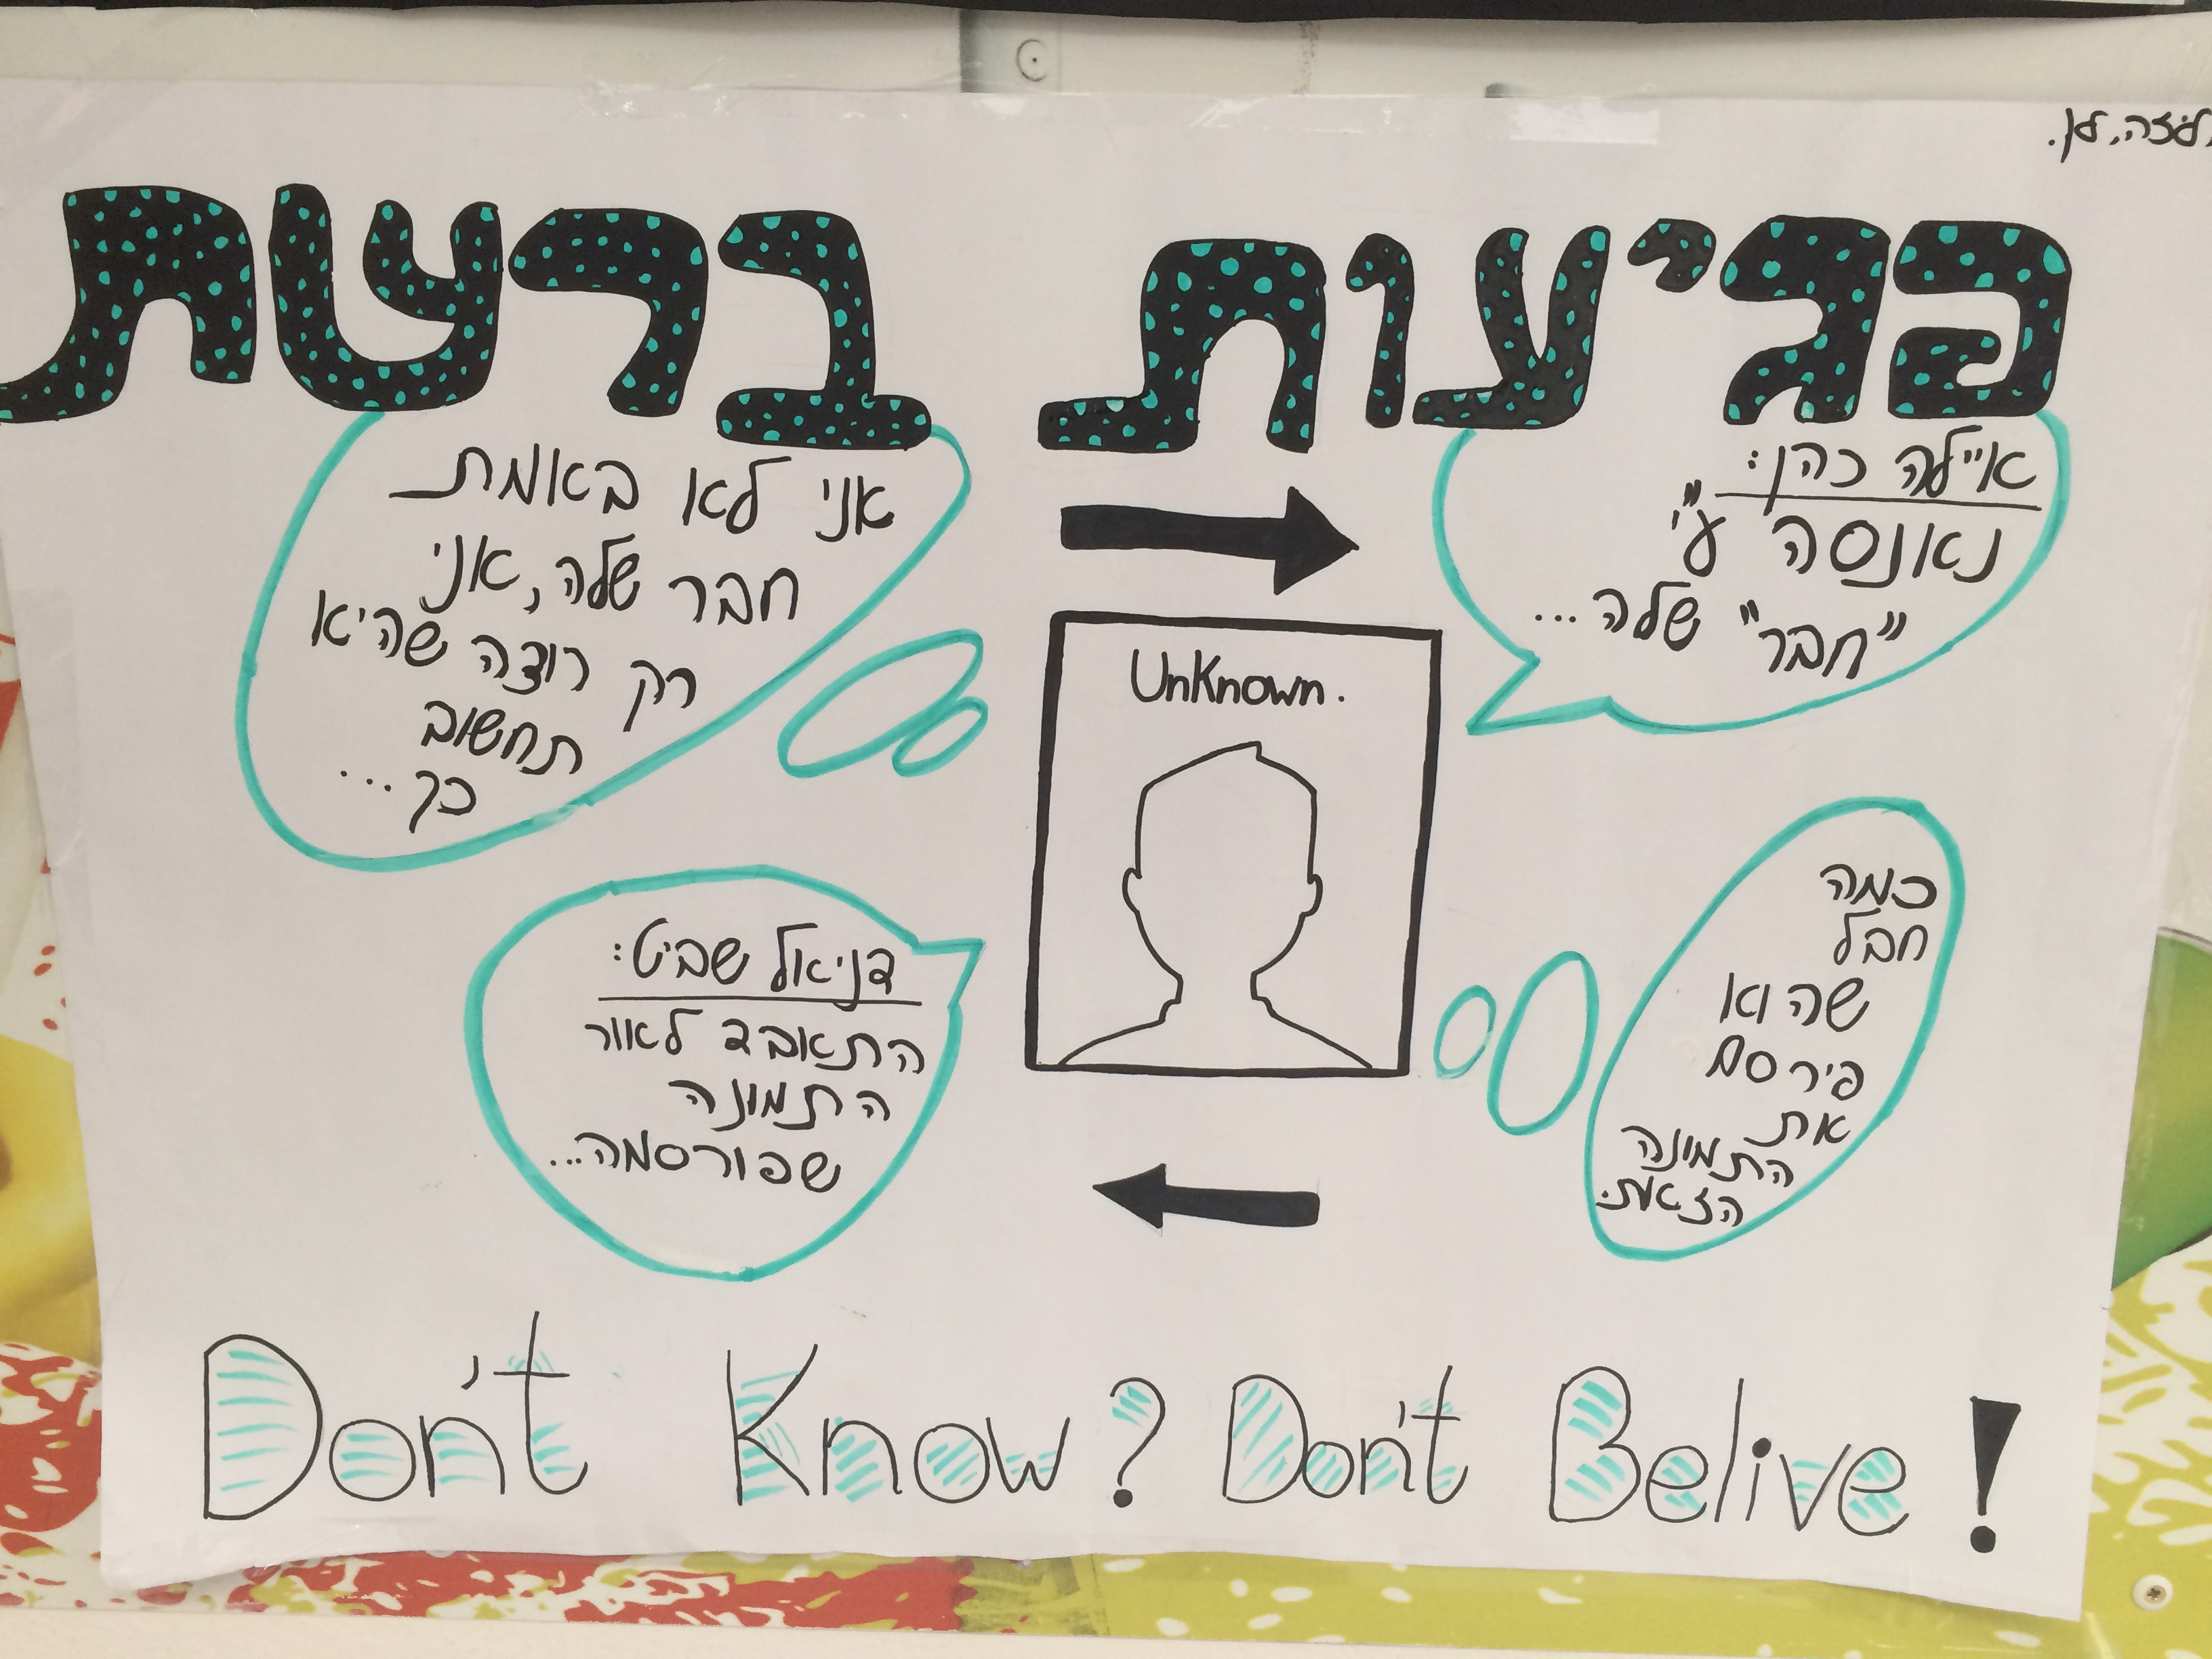 פגיעות ברשת
איילה כהן:
נאנסה ע"י
"חבר" שלה...
אני לא באמת
חבר שלה, אני
רק רוצה שהיא
תחשוב
כך...
UnKnown.
כמה
חבל
שהוא
פירסם
את
התמונה
הזאת.
דניאל שביט:
התאבד לאור
התמונה
שפורסמה...
Don't Know? Don't Belive!